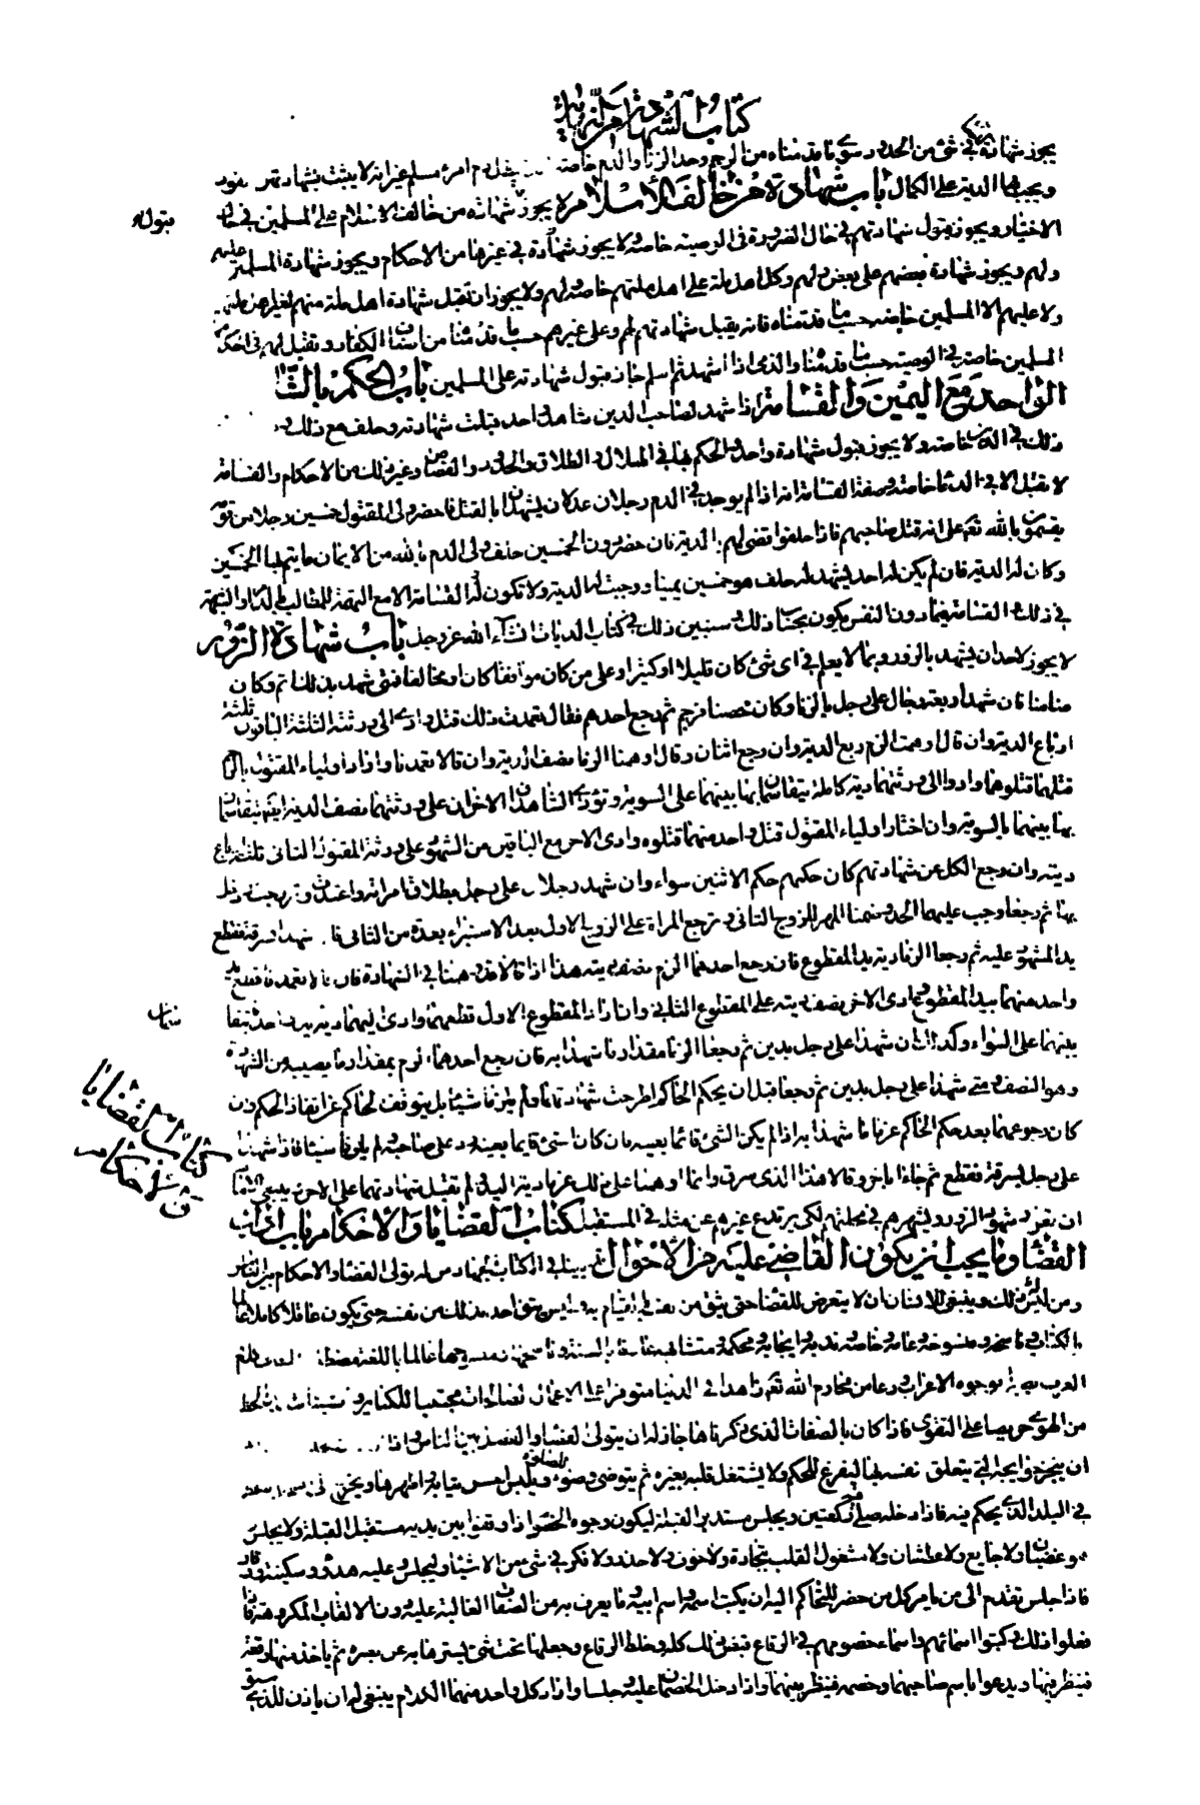 كتاب الشهادة من النهاية
يجوز شهادتهن في شئ من الحدود سوى ما قدمناه من الرجم وحد الزنا والدم خاصة امرئ مسلم غير انه لا يثبت بشهادتهن القود
ويجب بها الدية على الكمال باب شهادة من خالف الاسلام لا يجوز شهادة من خالف الاسلام على المسلمين في حال
قبول
الاختيار ويجوز قبول شهادتهم في حال الضرورة في الوصية خاصة ولا يجوز شهادة في غيرها من الاحكام ويجوز شهادة المسلمين عليهم
ولهم ويجوز شهادة بعضهم على بعض ولهم وكل اهل ملة على اهل ملتهم خاصة ولهم ولا يجوز ان تقبل شهادة اهل ملة منهم لغير اهل ملتهم
ولا عليهم الا المسلمين خاصة حسب ما قدمناه فانه يقبل شهادتهم لهم وعلى غيرهم حسب ما قدمنا من اصناف الكفار وتقبل لهم في احكام
المسلمين خاصة في الوصية حسب ما قدمنا والذمى اذا اشهد ثم اسلم جاز قبول شهادته على المسلمين باب الحكم بالشاهد
الواحد مع اليمين والقسامة اذا شهد لصاحب الدين شاهد واحد قبلت شهادته وحلف مع ذلك
ذلك في الدين خاصة ولا يجوز قبول شهادة واحد والحكم بها في الهلال والطلاق والحدود والقصاص وغير ذلك من الاحكام والقسامة
لا تقبل الا في الدماء خاصة وصفة القسامة انه اذا لم يوجد في الدم رجلان عدلان يشهدان بالقتل فاحضر ولى المقتول خمسين رجلا من قومه
يقسمون بالله تعالى على انه قتل صاحبهم فاذا حلفوا قضى لهم بالدية فان حضر دون الخمسين حلف ولى الدم بالله من الايمان ما يتم بها الخمسين
وكان له الدية فان لم يكن له احد يشهد له حلف هو خمسين يمينا ووجبت له الدية ولا تكون القسامة الا مع التهمة للمطالب بالدماء والشبهة
في ذلك والقسامة فيما دون النفس يكون بحساب ذلك وسنبين ذلك في كتاب الديات ان شاء الله عز وجل باب شهادة الزور
لا يجوز لاحد ان يشهد بالزور وبما لا يعلم في اى شئ كان قليلا او كثيرا وعلى من كان موافقا كان او مخالفا فمتى شهد بذلك اثم وكان
ضامنا فان شهد اربعة رجال على رجل بالزنا وكان محصنا فرجم ثم رجع احدهم فقال تعمدت ذلك قتل وادى الى ورثته الثلثة الباقون ثلثة
ارباع الدية وان قال اوهمت الزم ربع الدية وان رجع اثنان وقالا اوهمنا الزما نصف الدية وان قالا تعمدنا واراد اولياء المقتول بالرجم
قتلهما قتلوهما وادوا الى ورثتهما دية كاملة يتقاسمان بها بينهما على السوية وتؤدى الشاهدان الاخران على ورثتهما نصف الدية يتقاسمان
بها بينهما بالسوية وان اختار اولياء المقتول قتل واحد منهما قتلوه وادى الاخر مع الباقين من الشهود على ورثة المقتول الثانى ثلثة ارباع
ديته وان رجع الكل عن شهادتهم كان حكمهم حكم الاثنين سواء وان شهد رجلان على رجل بطلاق امرأته واعتدت وتزوجت ودخل
بها ثم رجعا وجب عليهما الحد وضمنا المهر للزوج الثانى وترجع المراة على الزوج الاول بعد الاستبراء بعدة من الثانى فان شهدا بسرقة فقطع
يد المشهود عليه ثم رجعا الزما دية يد المقطوع فان رجع احدهما الزم نصف ديته هذا اذا قالا اوهمنا في الشهادة فان قالا تعمدنا قطع يد
واحد منهما بيد المقطوع وادى الاخر نصف ديته على المقطوع الثانى وان اراد المقطوع الاول قطعهما وادى اليهما دية يد واحدة يتقا
سمان
بينهما على السواء وكذلك ان شهدا على رجل بدين ثم رجعا الزما مقدار ما شهدا به فان رجع احدهما الزم بمقدار ما يصيبه من الشهادة
وهو النصف ومتى شهدا على رجل بدين ثم رجعا قبل ان يحكم الحاكم اطرحت شهادتهما ولم يلزما شيئا بل يتوقف الحاكم عن انفاذ الحكم وان
كان رجوعهما بعد حكم الحاكم غرما ما شهدا به اذا لم يكن الشئ قائما بعينه فان كان الشئ قائما بعينه رد على صاحبه ولم يلزما شيئا فاذا شهدا
على رجل بسرقة فقطع ثم جاءا باخر وقالا هذا الذى سرق وانما اوهمنا على ذلك غرما دية اليد ولم تقبل شهادتهما على الاخر وينبغى للامام
كتاب القضايا والاحكام
ان يعزر شهود الزور ويشهرهم في محلتهم لكى يرتدع غيرهم عن مثله في المستقبل كتاب القضايا والاحكام باب اداب
القضاء وما يجب ان يكون القاضى عليه من الاحوال قد بينا في كتاب الجهاد من له تولى القضاء والاحكام بين الناس
ومن ليس له ذلك وينبغى للانسان ان لا يتعرض للقضاء حتى يثق من نفسه في القيام به وليس يثق احد بذلك من نفسه حتى يكون عاقلا كاملا عالما
بالكتاب وناسخه ومنسوخه وعامه وخاصه وندبه وايجابه ومحكمه ومتشابهه عارفا بالسنة وناسخها ومنسوخها عالما باللغة مضطلعا بمعانى كلام
العرب بصيرا بوجوه الاعراب ورعا من محارم الله تعالى زاهدا في الدنيا متوفرا على الاعمال الصالحات مجتنبا للكبائر
من الهوى حريصا على التقوى فاذا كان بالصفات الذى ذكرناها جاز له ان يتولى القضاء والفصل بين الناس واذا
ان ينجز حوايجه التى يتعلق نفسه بها ليفرغ للحكم ولا يشتغل قلبه بغيره ثم يتوضى وضوء الصلوة ويلبس احسن ثيابه واطهرها ويخرج
في البلد الذى يحكم فيه فاذا دخله صلى ركعتين ويجلس مستدبر القبلة ليكون وجوه الخصوم اذا وقفوا بين يديه مستقبل القبلة ولا يجلس
وهو غضبان ولا جايع ولا عطشان ولا مشغول القلب بتجارة ولا خوف ولا حزن ولا فكر في شئ من الاشياء وليجلس وعليه هدو وسكينة ووقار
فاذا جلس تقدم الى من يامر كل من حضر للتحاكم اليه ان يكتب اسمه واسم ابيه وما يعرف به من الصفات الغالبة عليه دون الالقاب المكروهة فاذا
فعلوا ذلك وكتبوا اسمائهم واسماء خصومهم في الرقاع قبض ذلك كله وخلط الرقاع وجعلها تحت شئ يسترها به عن بصره ثم ياخذ منها رقعة
فينظر فيها ويدعوا باسم صاحبها وخصمه فينظر بينهما واذا دخل الخصمان عليه وجلسا واراد كل واحد منهما الكلام ينبغى له ان ياذن للذى سبق